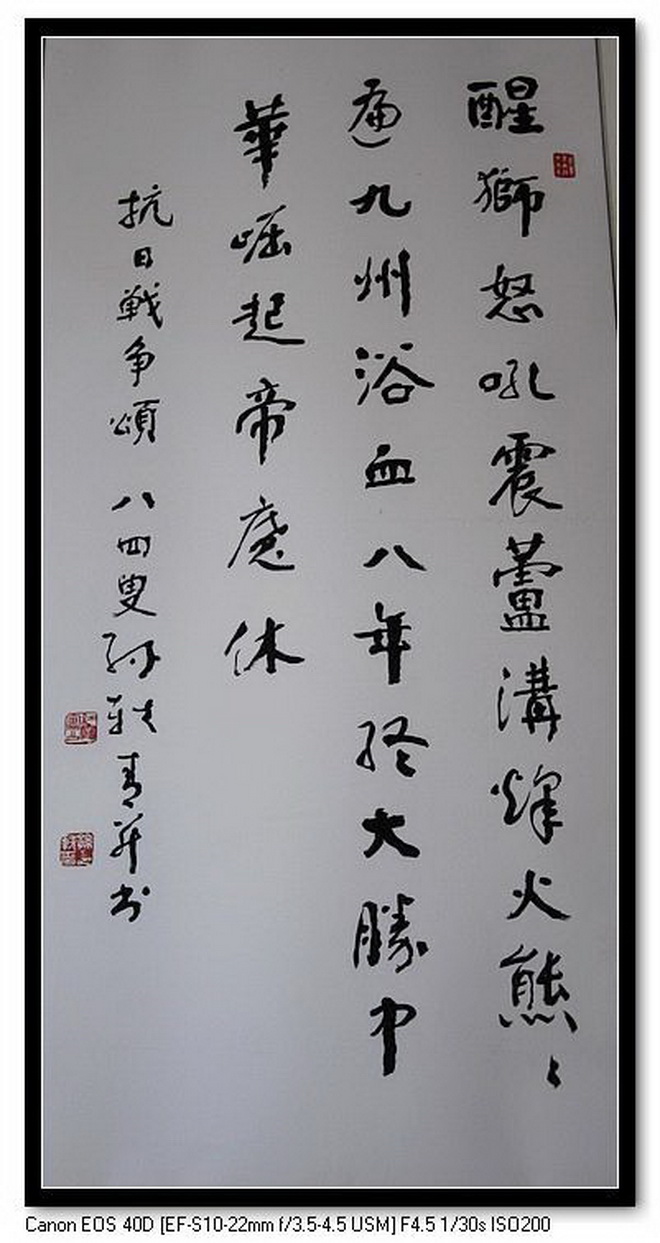 醒獅怒吼震蘆溝烽火熊〻
遍九州浴血八年終大勝中
華崛起帝魔休
抗日戰争頌 八四叟孙轶青并书
Canon EOS 40D [EF-S10-22mm f/3.5-4.5 USM] F4.5 1/30s ISO200